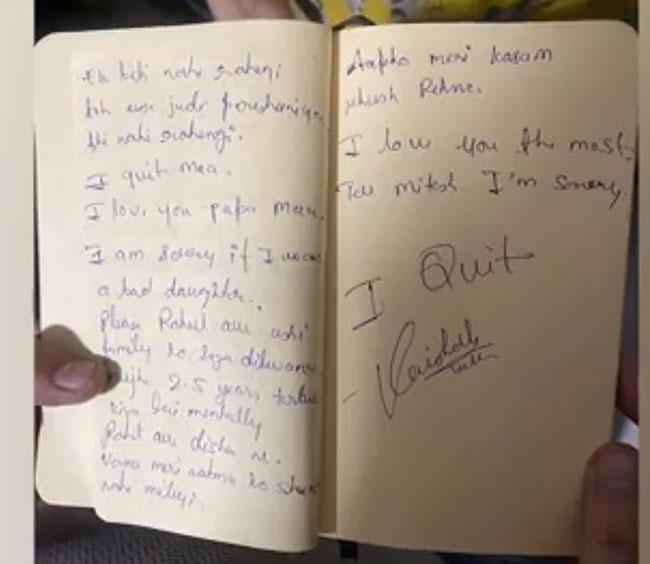 Ek beti nahi rahegi
toh use judi poushaniya
bhi nahi rahengi.
I quit maa.
I love you papa maa.
I am sorry if I was
a bad daughter..
Please Rahul aur uski
family ko saja dilwana
mujhe 2.5 years torture
kiya hai mentally
Rahul aur disha ne.
Varna meri aatma ko
nahi milegi.
Aapko meri kasam
khush Rehna.
I love you the most.
Tell mitesh I'm sorry.
I Quit